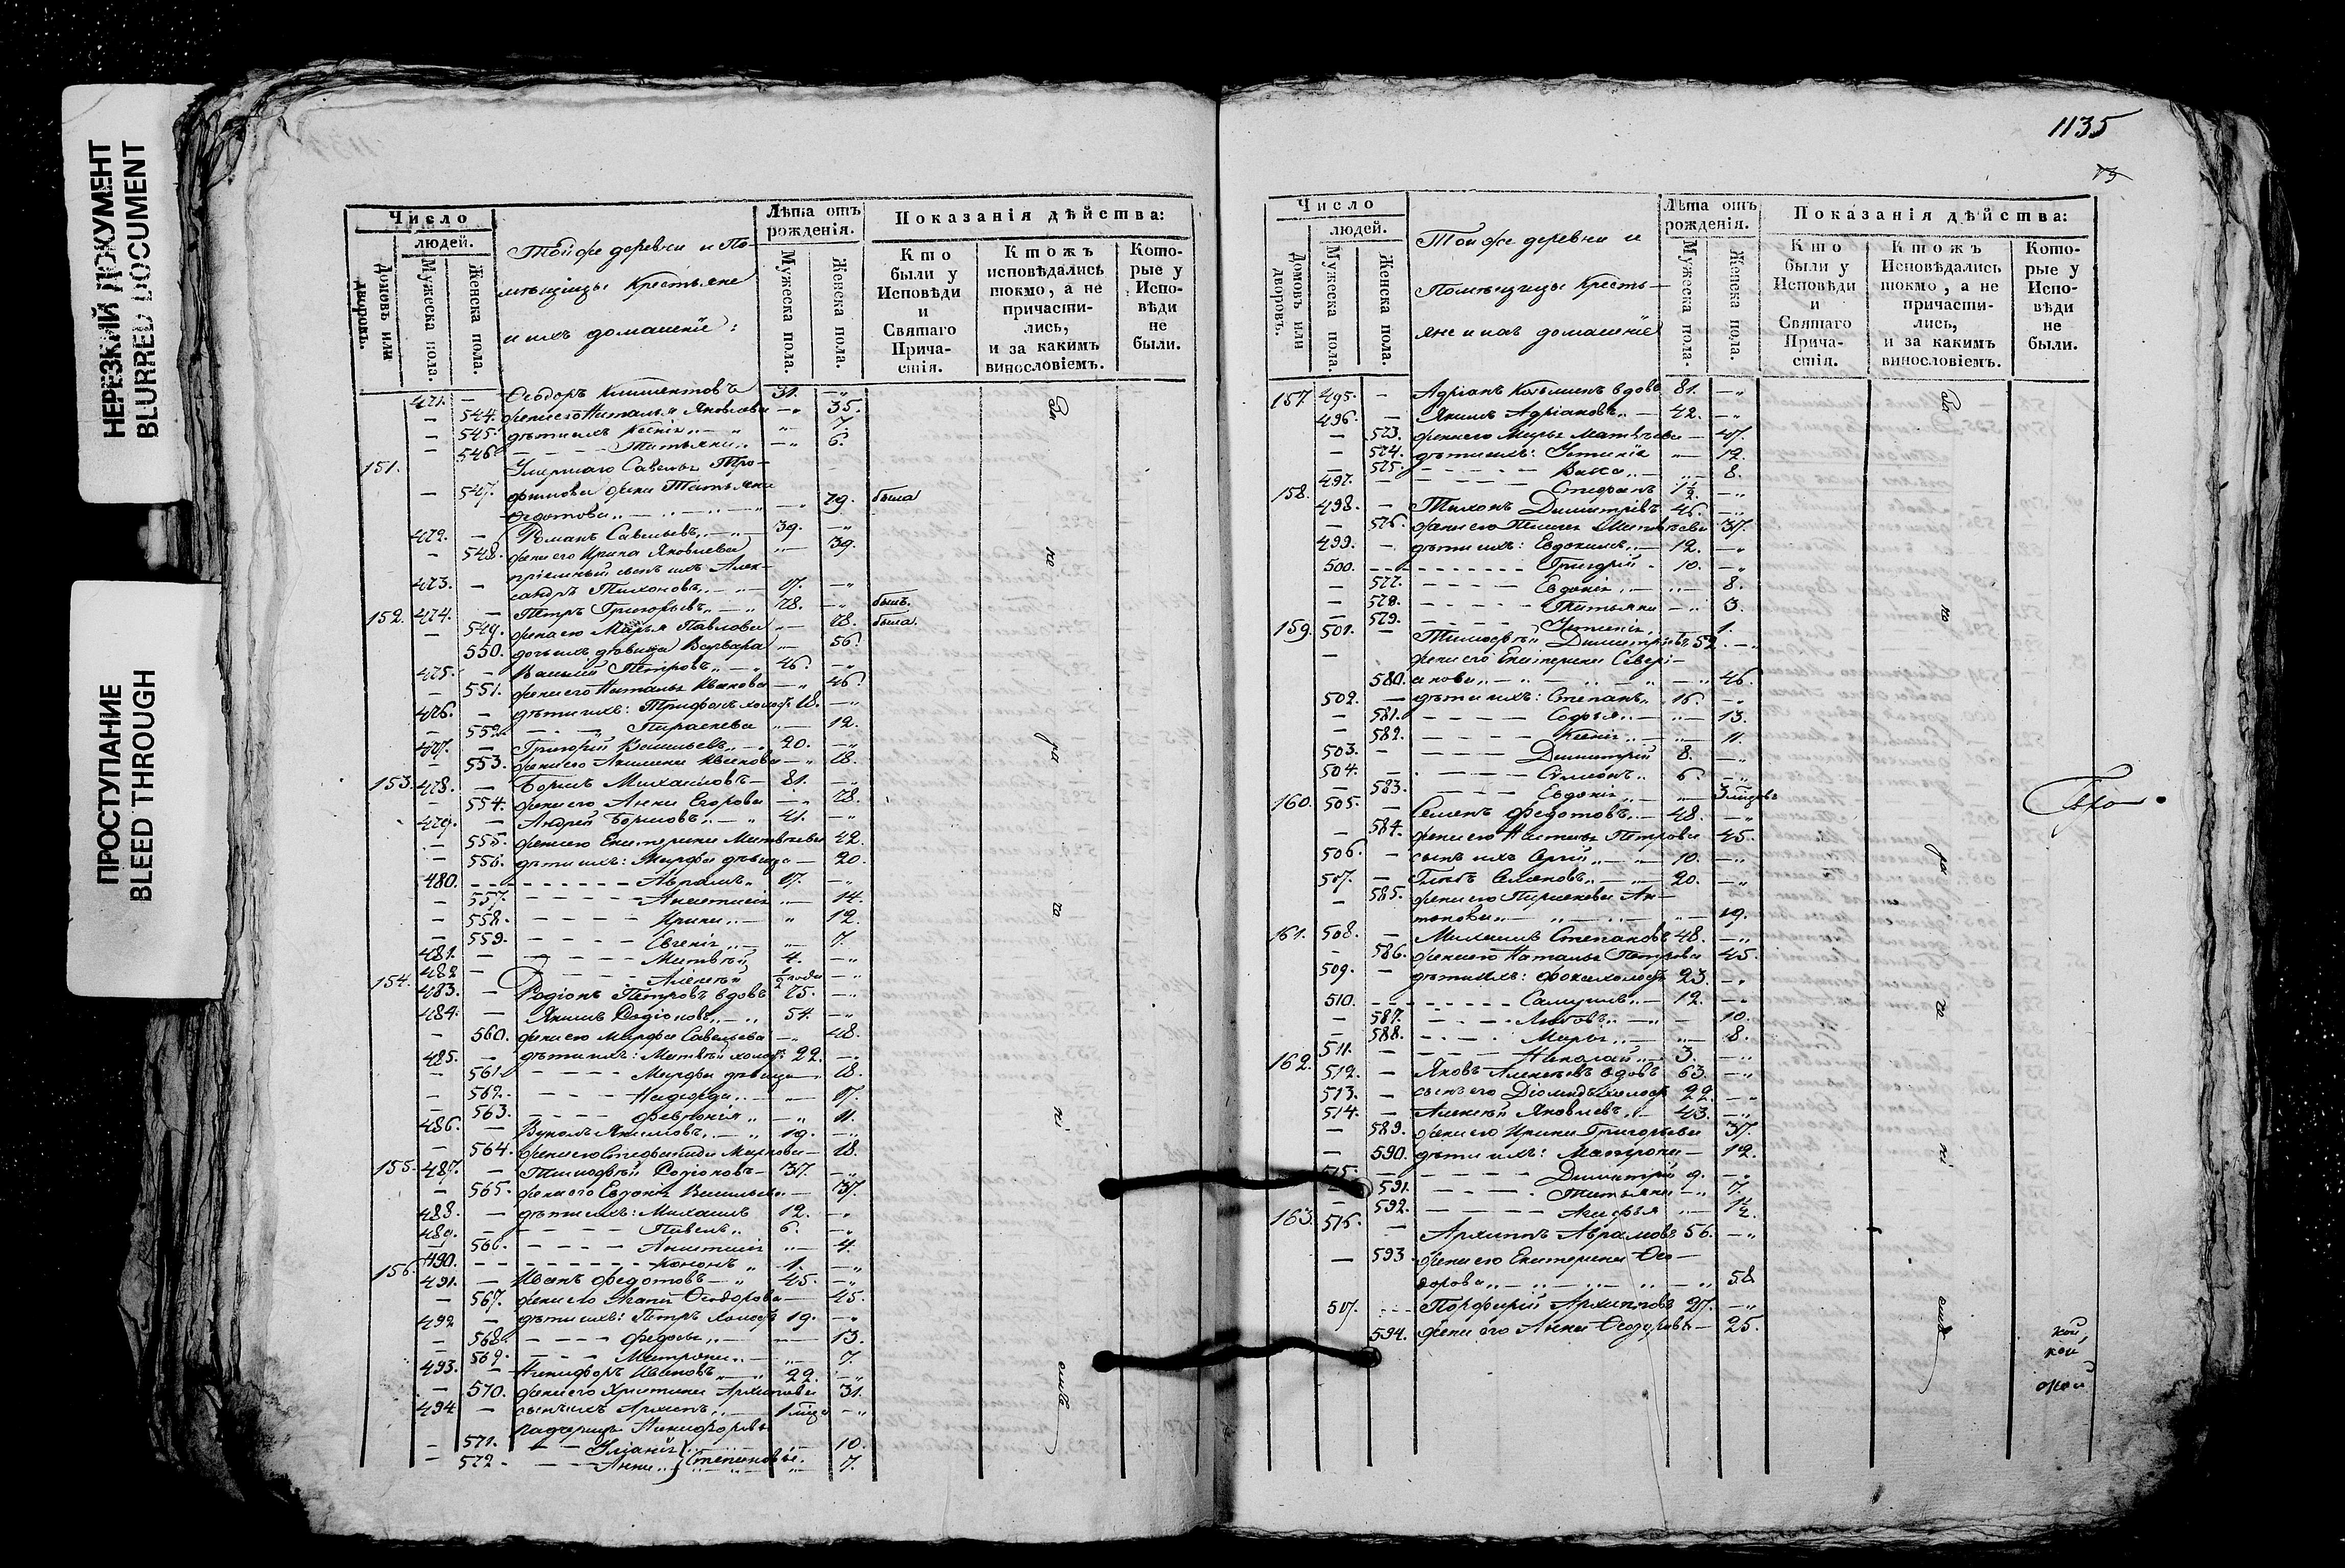 НЕРЕЗКИЙ ДОКУМЕНТ
BLURRED DOCUMENT
ПРОСТУПАНИЕ
BLEED THROUGH
Число
людей.
Домовъ или дворовъ.
Мужеска пола.
Женска пола.
Тойже деревни и По-
мѣщицы Крестьяне
и ихъ домашніе:
Лѣта отъ
рожденія.
Мужеска пола.
Женска пола.
Показанія дѣйства:
Кто
были у
Исповѣди
и
Святаго
Прича-
стія.
Ктожъ
исповѣдались
токмо, а не
причасти-
лись,
и за какимъ
винословіемъ.
Кото-
рые у
Испо-
вѣди
не
были.
471. — Ѳеодоръ Климентовъ 31. —"
— 544. жена его Наталья Яковлева —" 35.
— 545. дѣти ихъ Ксенія " 7.
— 546. Татьяна —" 6.
151. Умершаго Савелья Тро-
— 547. фимова жена Татьяна
Ѳедотова 79. была
472. — Романъ Савельевъ 39. —"
— 548. жена его Ирина Яковлева — 39.
пріемный сынъ ихъ Алек-
473. — сандръ Тихоновъ 17. —"
152. 474. — Петръ Григорьевъ 78. —" былъ.
— 549. жена его Марья Павлова — 78. была.
550. дочь ихъ дѣвица Варвара — 56.
475. — Василий Петровъ 46. —"
— 551. жена его Наталья Иванова —" 46.
476. — дѣти ихъ: Трифонъ холост 18. —"
— 552. Параскева — 12.
477. — Григорій Васильевъ 20. —"
553. жена его Акилина Иванова —" 18.
153. 478. — Борисъ Михаиловъ — 81. —"
— 554. жена его Анна Егорова —" 78.
479. — Андрей Борисовъ 41. —"
— 555. жена его Екатерина Матвѣева 42.
— 556. дѣти ихъ: Марфа дѣвица — 20.
480. Авраамъ 17. —"
— 557. Анастасія — 14.
— 558. Ирина " 12.
— 559. Евгенія — 7.
481. — Матвѣй 4. —"
154. 482 — Алексѣй ½ года —"
483. — Родіонъ Петровъ вдовъ 75. —"
484. — Якимъ Родіоновъ 54. —"
— 560. жена его Марфа Савельева —" 48.
485. — дѣти ихъ: Матвѣй холост: 22. —"
— 561. Марфа дѣвица — 18.
— 562. Надежда — 17.
— 563. Февронія —" 11.
486. — Вуколъ Якимовъ 19. —"
— 564. жена его Стефанида Маркова — 18.
155. 487. — Тимофѣй Родіоновъ — 37. —"
— 565. жена его Евдокія Васильева — 37.
488. — дѣти ихъ: Михаилъ 12. —"
489. — Павелъ 6. —"
— 566. Анастасія — 4.
490. Кононъ 1. —"
156. 491. — Иванъ Федотовъ 45. —"
— 567. жена его Агапія Ѳеодорова — 45.
492 — дѣти ихъ: Петръ холост 19. —"
— 568. Федосья — 13.
— 569. Матрона — 7.
493. — Никифоръ Ивановъ 22. —"
— 570. жена его Христина Архипова 31.
494 — сынъ ихъ Архипъ 1 мѣся —"
падчерицы Никифоровы
— 571. Уліанія 10.
— 572. Анна Степановы. 7.
За
не
ра
че
ні
емъ
1135
Число
людей.
Домовъ или дворовъ.
Мужеска пола.
Женска пола.
Тойже деревни и
Помѣщицы Кресть-
яне и ихъ домашніе
Лѣта отъ
рожденія.
Мужеска пола.
Женска пола.
Показанія дѣйства:
Кто
были у
Исповѣди
и
Святаго
Прича-
стія.
Ктожъ
Исповѣдались
токмо, а не
причасти-
лись,
и за какимъ
винословіемъ.
Кото-
рые у
Испо-
вѣди
не
были.
157. 495. — Адріанъ Козьминъ вдовъ 81. —"
496. — Якимъ Адріановъ — 42. —"
— 573. жена его Марья Матвѣева — 47.
— 574. дѣти ихъ: Устинія — 12.
— 575. Васса — 8.
497. Стефанъ 1½ —"
158. 498. — Тихонъ Димитріевъ 46. —"
— 576. жена его Пелагея Матвѣева 37.
499. — дѣти ихъ: Евдокимъ — 12. —"
500. Григорій 10. —"
— 577. Евдокія — 8.
— 578. Татьяна —" 3.
— 579. Устинія — 1.
159. 501. — Тимофѣй Димитріевъ 52. —"
— жена его Екатерина Севері-
580. анова —" 46.
502. — дѣти ихъ: Степанъ 16. —"
— 581. Софья — 13.
— 582. Ксенія — 11.
503. — Димитрій 8. —"
504. — Симеонъ 6. —"
— 583. Евдокія — 3 мѣсяцъ
160. 505. — Семенъ Федотовъ — 48. —"
— 584. жена его Настасья Петрова 45.
506. — сынъ ихъ Сергій — 10. —"
507. — Глѣбъ Семеновъ — 20. —"
— 585. жена его Параскева Ан-
тонова — 19.
161. 508. — Михаилъ Степановъ 48. —"
— 586. жена его Наталья Петрова 45.
509. — дѣти ихъ: Фока холост 23. —"
510. Самуилъ — 12. —"
— 587. Любовь — 10.
— 588. Марья — 8.
511. — Николай 3. —"
162. 512. — Яковъ Алексѣевъ вдовъ 63. —"
513. — сынъ его Діомидъ холост 22. —"
514. — Алексѣй Яковлевъ 43. —"
— 589. жена его Ирина Григорьева 37.
— 590. дѣти ихъ: Матрона — 12.
515. Димитрій 9. —"
— 591. Татьяна —" 7.
592. Агафья — 1½
163. 516. — Архипъ Абрамовъ 56. —"
— 593 жена его Екатерина Ѳео-
дорова —" 58
517. Порфирій Архиповъ 27. —"
594. жена его Анна Ѳеодорова — 25.
За
не
ра
че
ні
емъ